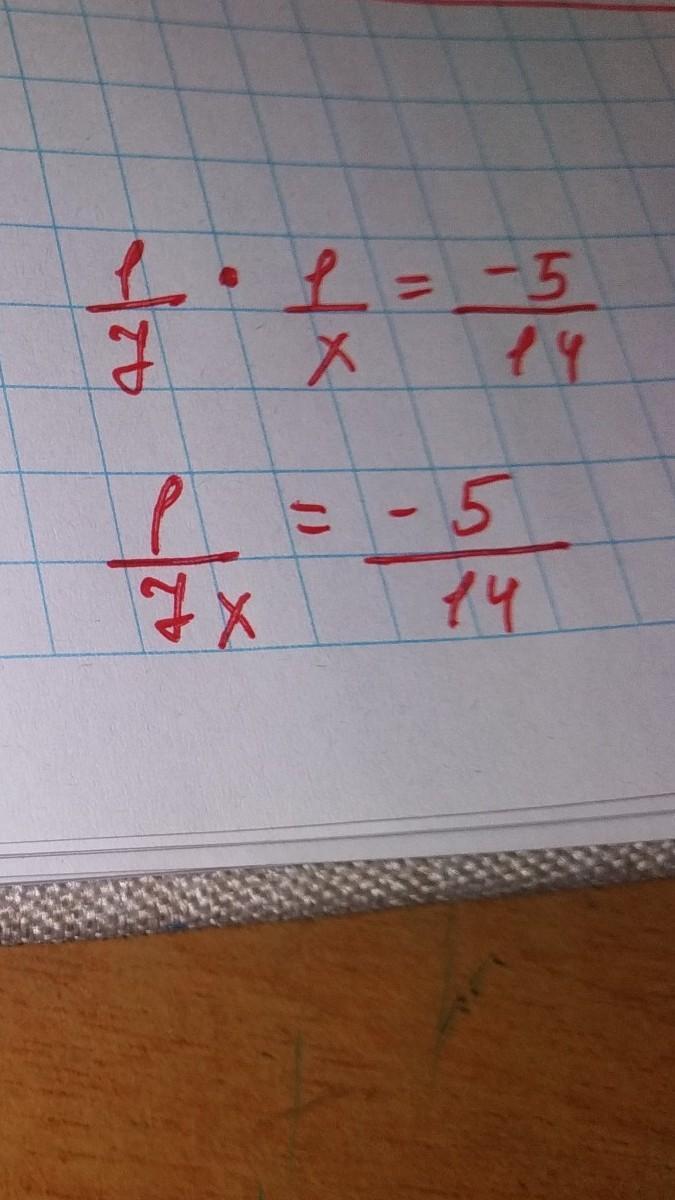 1/7 · 1/x = -5/14
1/7x = -5/14